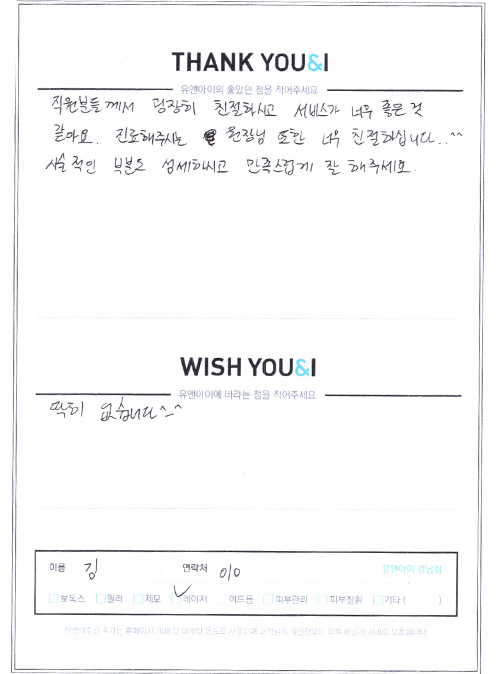 THANK YOU&I
유앤아이의 좋았던 점을 적어주세요
직원분들께서 굉장히 친절하시고 서비스가 너무 좋은 것
같아요. 진료해주시는 원장님 또한 너무 친절하십니다..^^
시술적인 부분도 섬세하시고 만족스럽게 잘 해주세요.
WISH YOU&I
유앤아이에 바라는 점을 적어주세요
딱히 없습니다^-^
이름 김 연락처 010 유앤아이 강남점
보톡스 필러 제모 레이저 여드름 피부관리 피부질환 기타 ( )